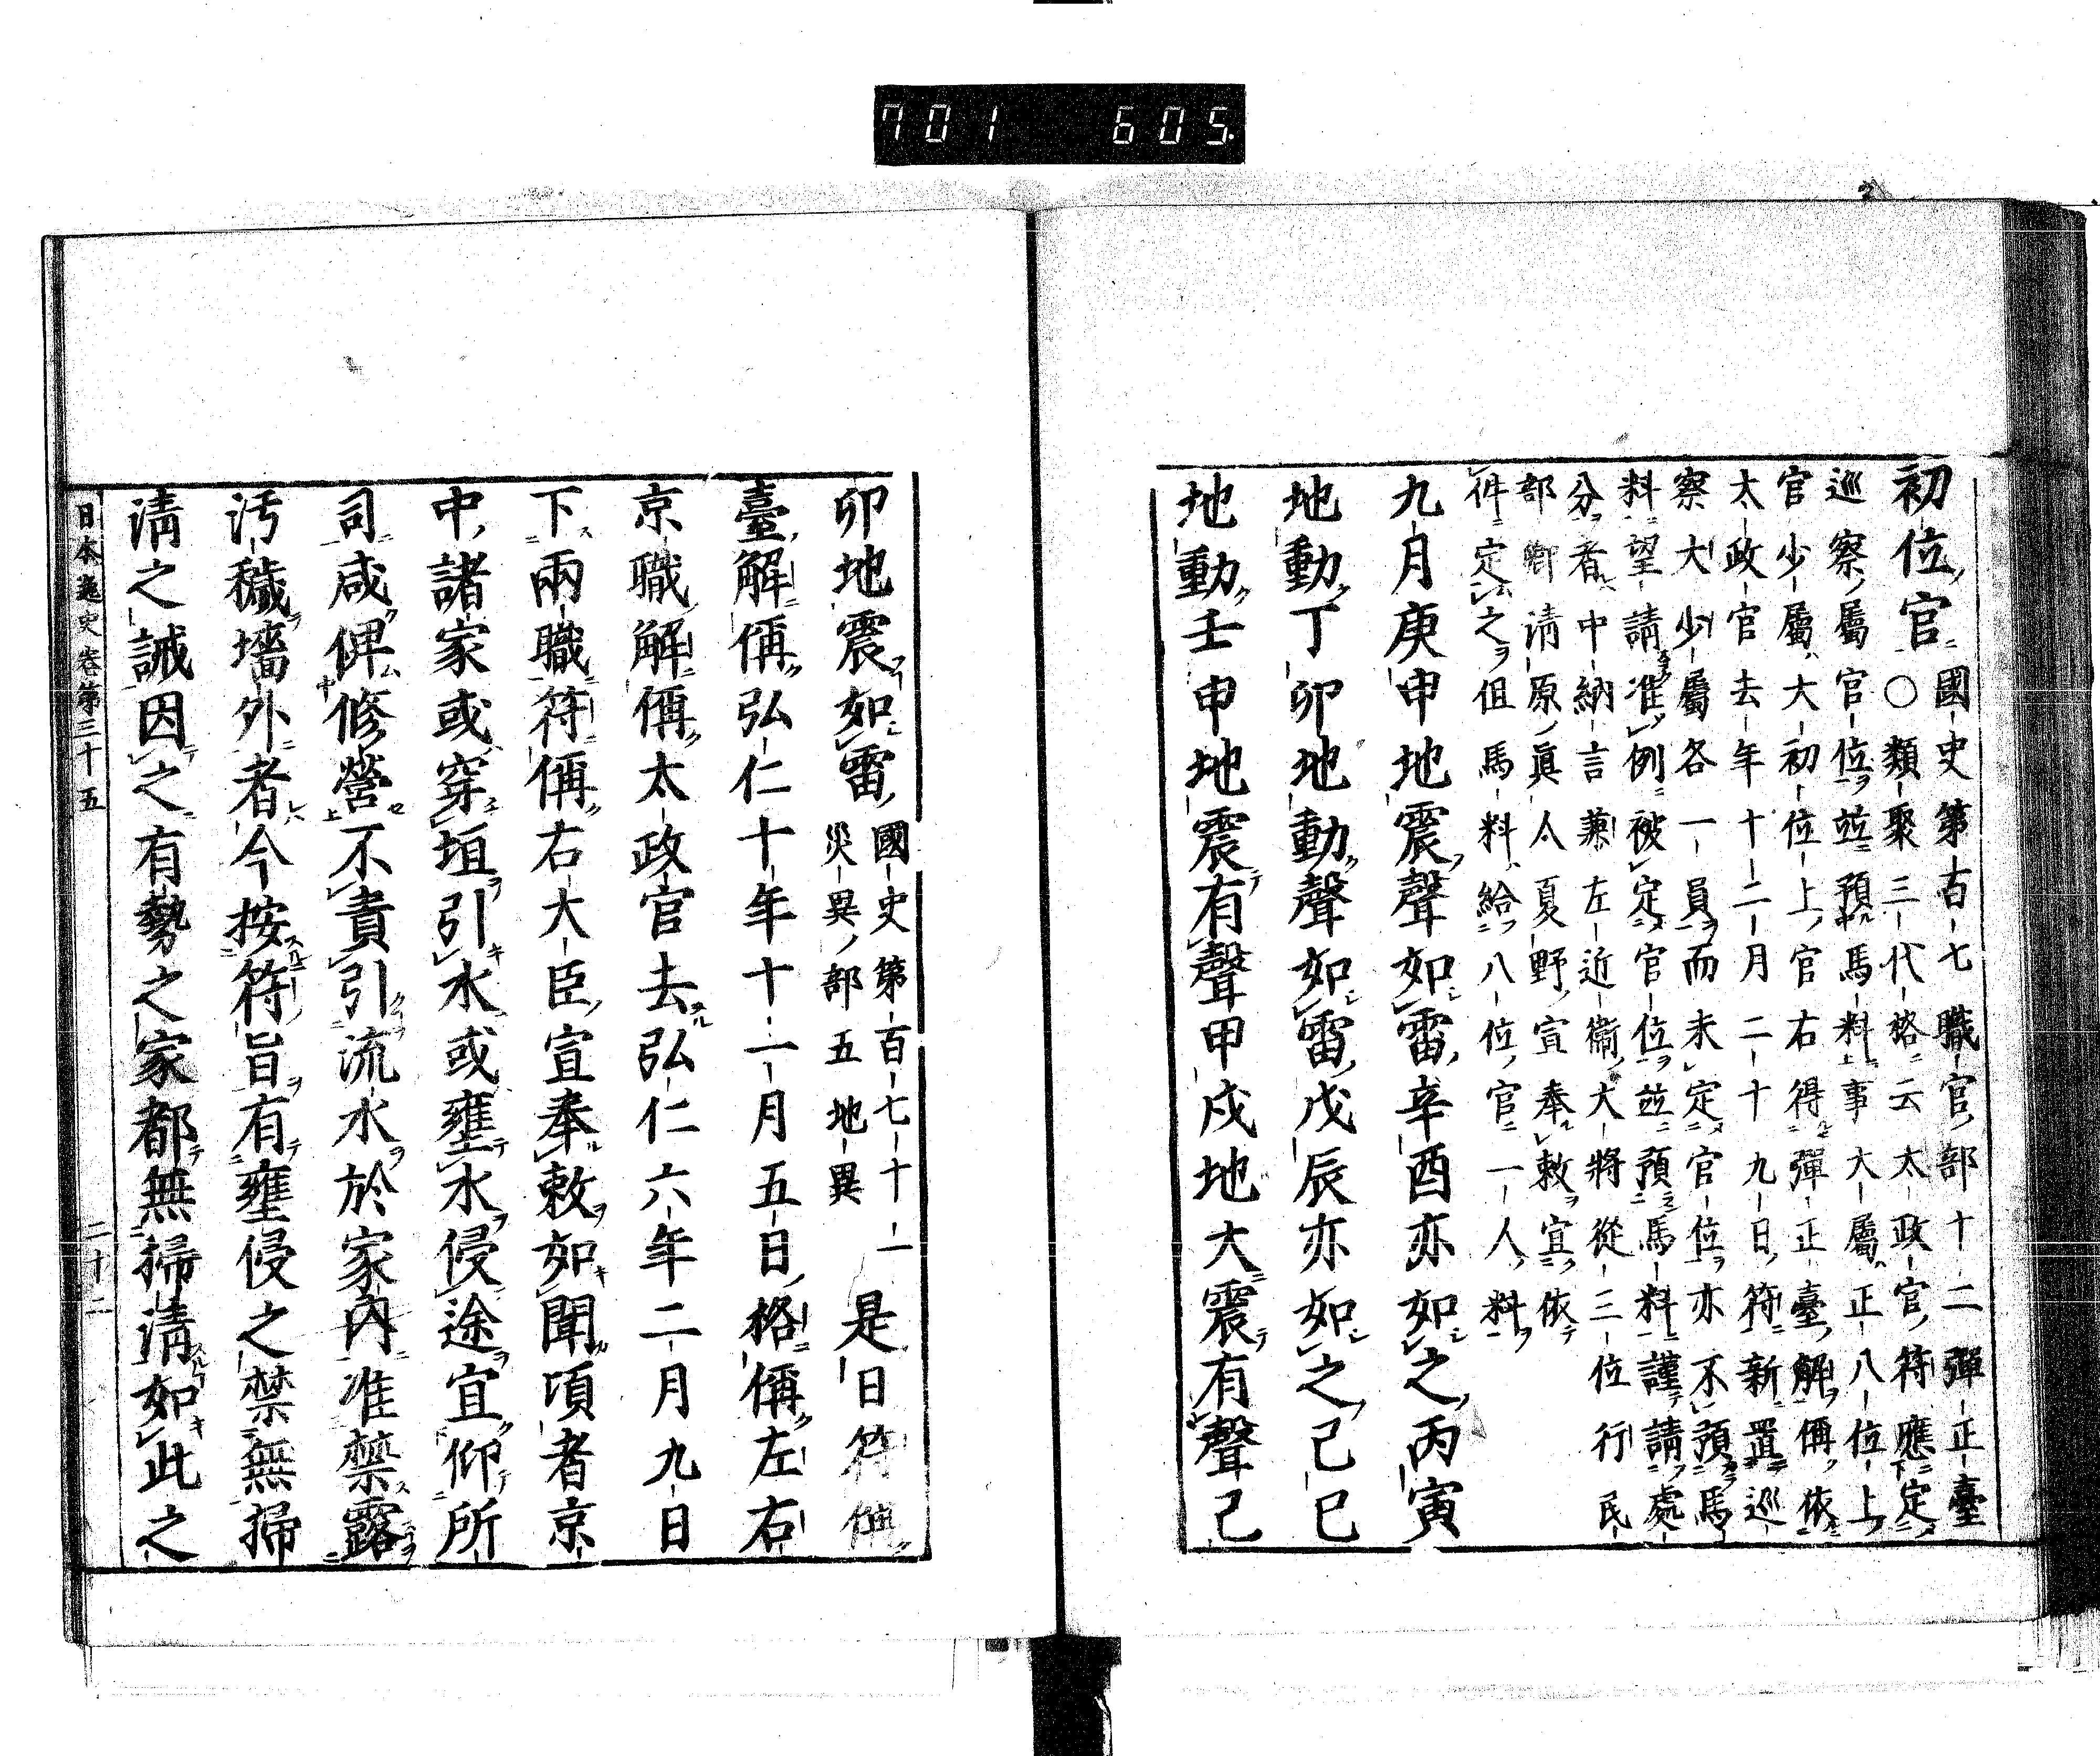 701 605
初位官 國史第百七職官部十二彈正臺
○類聚三代格云太政官符應定
巡察屬官位並預馬料事大屬正八位上
官少屬大初位上官右得彈正臺解偁依
太政官去年十二月二十九日符新置巡
察大少屬各一員而未定官位亦不預馬
料望請准例被定官位並預馬料謹請處
分者中納言兼左近衞大將從三位行民
部卿清原眞人夏野宣奉敕宜依
件定之但馬料給八位官一人料
九月庚申地震聲如雷辛酉亦如之丙寅
地動丁卯地動聲如雷戊辰亦如之己巳
地動壬申地震有聲甲戌地大震有聲己
卯地震如雷 國史第百七十一
災異部五地異 是日符偁
臺解偁弘仁十年十一月五日格偁左右
京職解偁太政官去弘仁六年二月九日
下兩職符偁右大臣宣奉敕如聞項者京
中諸家或穿垣引水或壅水侵途宜仰所
司咸俾修營不責引流水於家內准禁露
汚穢墻外者今按符旨有壅侵之禁無掃
淸之誡因之有勢之家都無掃淸如此之
日本逸史卷第三十五 二十二